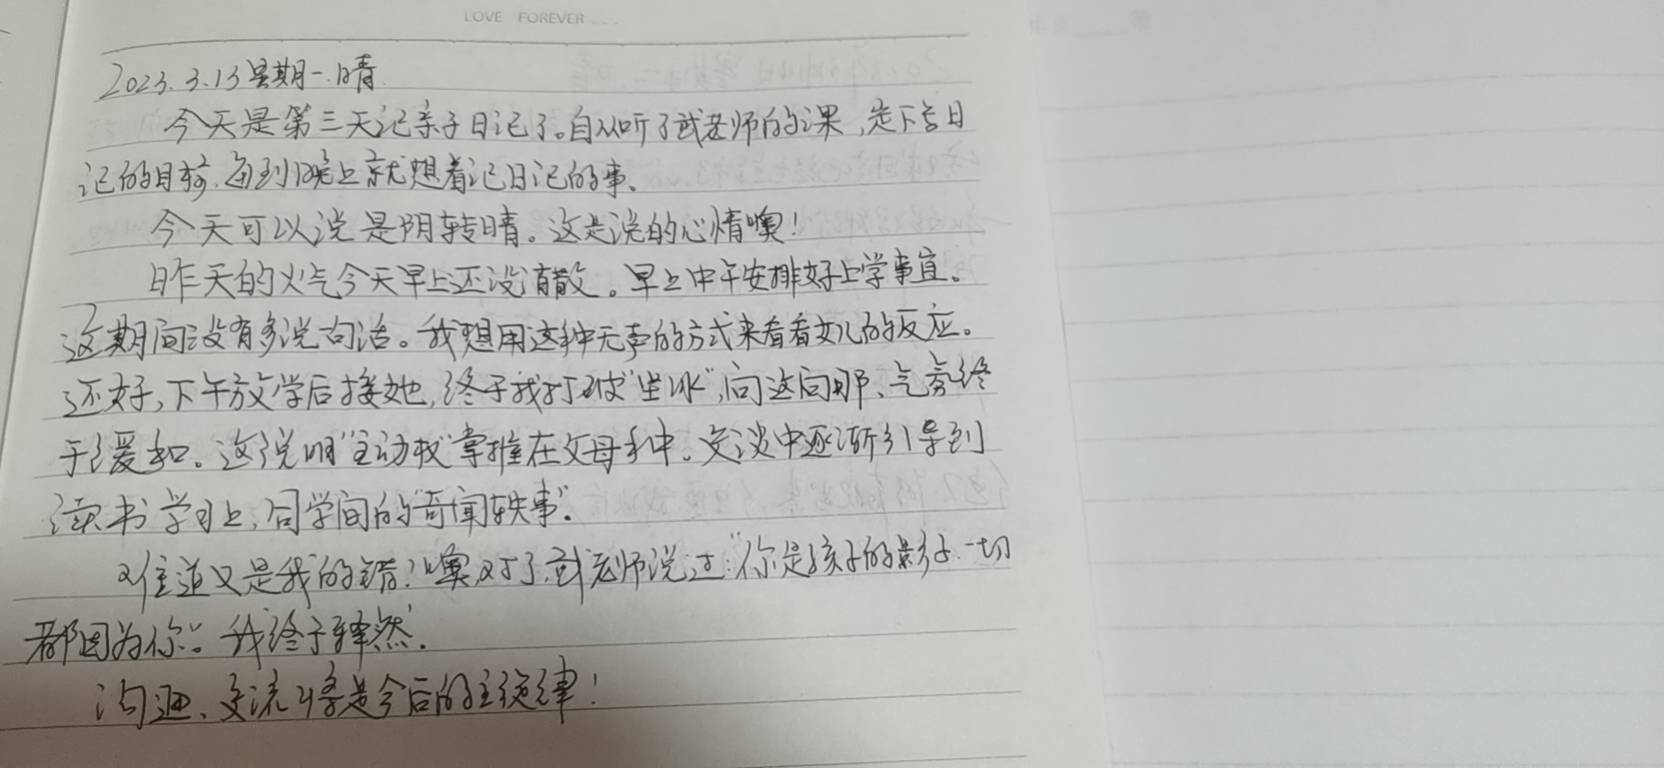 LOVE FOREVER...
2023.3.13星期一.晴.
今天是第三天记亲子日记了。自从听了武老师的课,定下写日
记的目标,每到晚上就想着记日记的事、
今天可以说是阴转晴。这是说的心情噢!
昨天的火气今天早上还没有散。早上中午安排好上学事宜。
这期间没有多说句话。我想用这种无声的方式来看看女儿的反应。
还好,下午放学后接她,终于我打破"坚冰",问这问那、气氛终
于缓和。这说明"主动权"掌握在父母手中。交谈中逐渐引导到
读书学习上,同学间的"奇闻轶事"。
难道又是我的错?噢,对了,武老师说过:"你是孩子的影子.一切
都因为你"。我终于释然.
沟通、交流将是今后的主旋律!